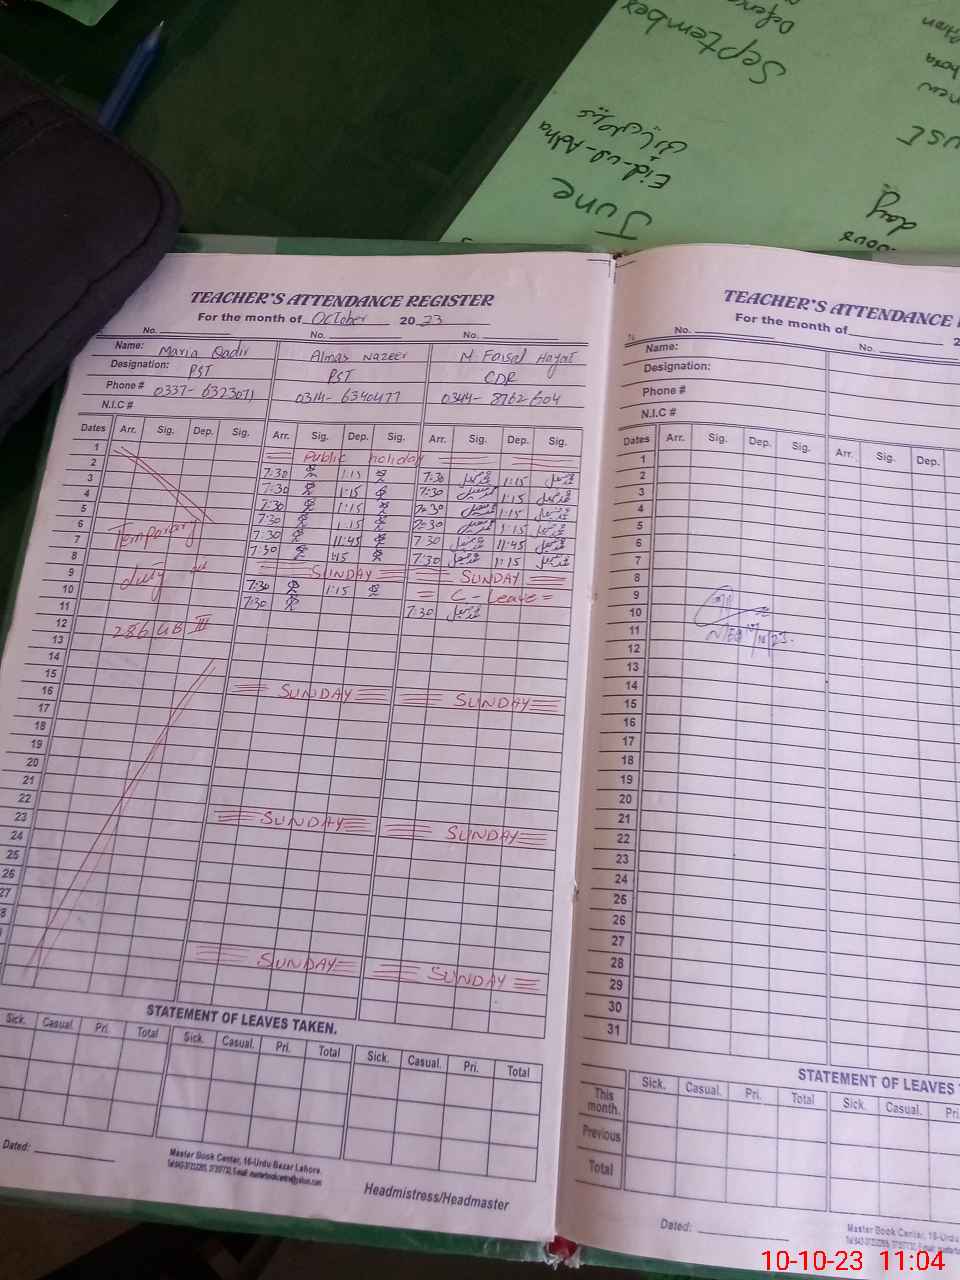 September
Defence
Eid-ul-Adha
June
day
TEACHER'S ATTENDANCE REGISTER
For the month of October 2023
No. No. No.
Name: Maria Qadir Almas Nazeer M. Faisal Hayat
Designation: PST PST CDR
Phone # 0337-6323071 0314-6340477 0344-8762604
N.I.C #
Dates Arr. Sig. Dep. Sig. Arr. Sig. Dep. Sig. Arr. Sig. Dep. Sig.
1
2 Public holiday
3 7:30 1:15 7:30 1:15
4 7:30 1:15 7:30 1:15
5 7:30 1:15 7:30 1:15
6 Temporary 7:30 1:15 7:30 1:15
7 7:30 11:45 7:30 11:45
8 duty 7:30 7:30 1:15
9 SUNDAY SUNDAY
10 7:30 1:15 C-Leave
11 286 GB III 7:30 7:30
12
13
14
15
16 SUNDAY SUNDAY
17
18
19
20
21
22
23 SUNDAY SUNDAY
24
25
26
27
8
SUNDAY SUNDAY
STATEMENT OF LEAVES TAKEN.
Sick. Casual. Pri. Total Sick. Casual. Pri. Total Sick. Casual. Pri. Total
Dated:
Master Book Center, 16-Urdu Bazar Lahore.
Headmistress/Headmaster
TEACHER'S ATTENDANCE
For the month of
No. No.
Name:
Designation:
Phone #
N.I.C #
Dates Arr. Sig. Dep. Sig. Arr. Sig. Dep.
1
2
3
4
5
6
7
8
9
10
11
12
13
14
15
16
17
18
19
20
21
22
23
24
25
26
27
28
29
30
31
STATEMENT OF LEAVES
Sick. Casual. Pri. Total Sick. Casual. Pri.
This month.
Previous
Total
Dated:
Master Book Center, 16-Urdu
10-10-23 11:04